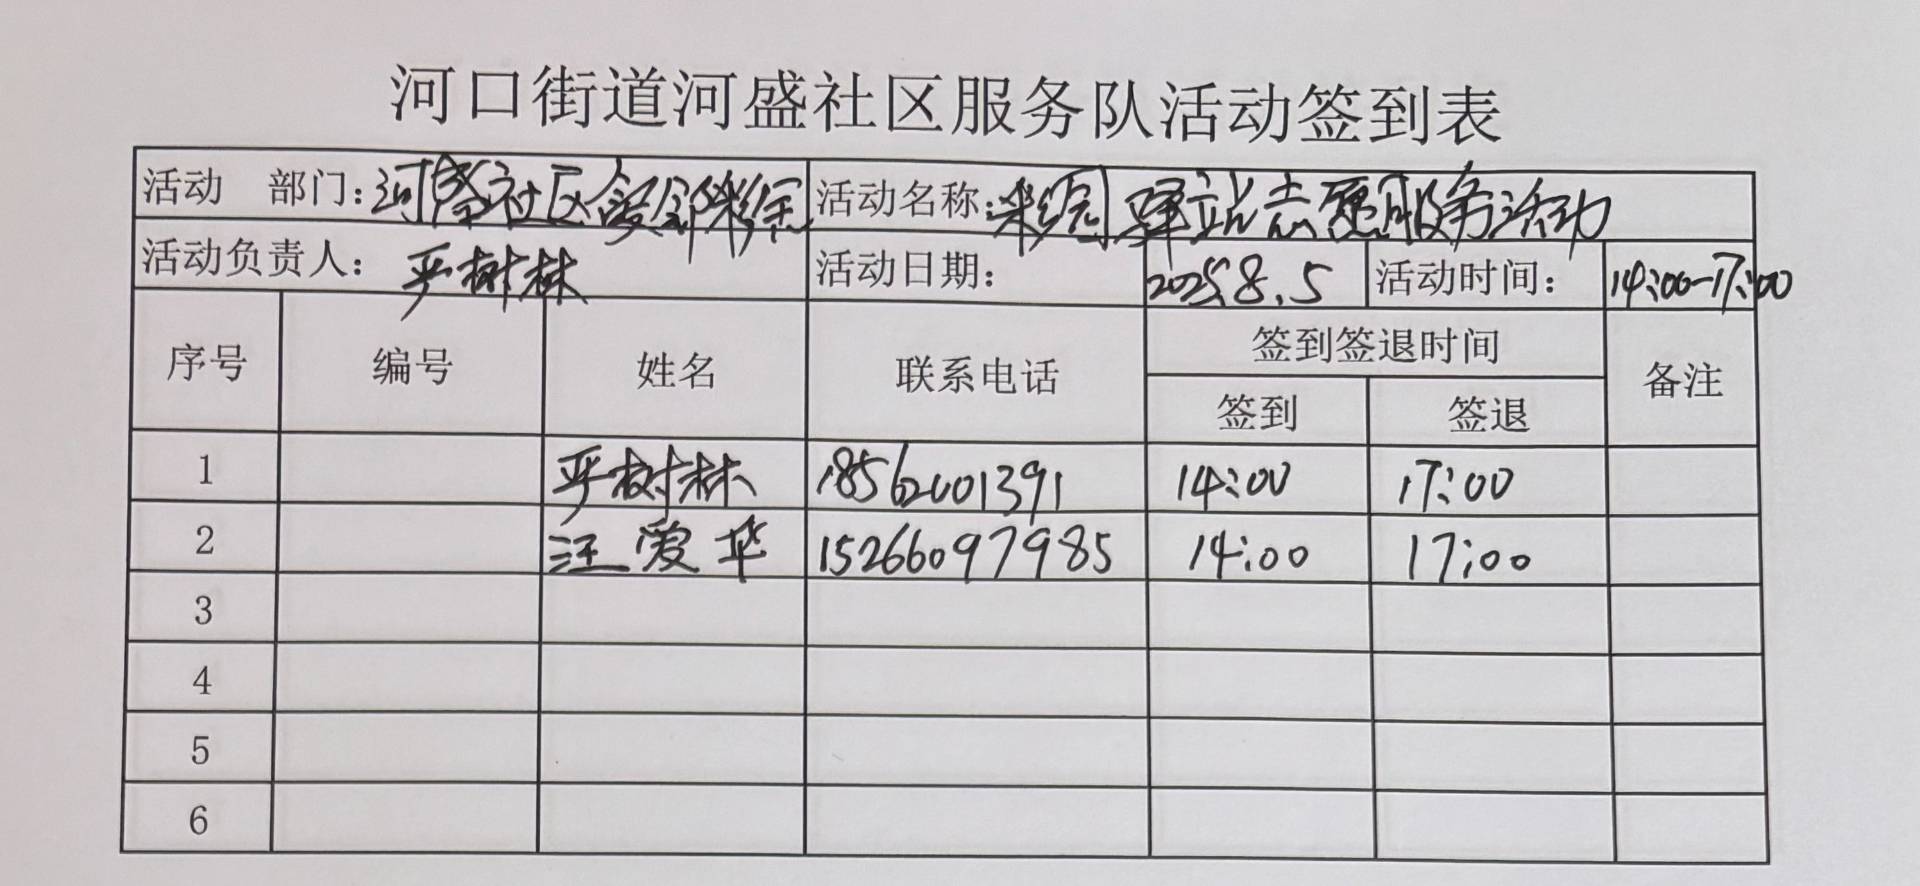 河口街道河盛社区服务队活动签到表
活动 部门：河盛社区 活动名称：彩绘园建站志愿服务活动
活动负责人：严树林 活动日期： 2025.8.5 活动时间： 14:00-17:00
序号 编号 姓名 联系电话 签到签退时间 备注
签到 签退
1 严树林 18562001391 14:00 17:00
2 汪爱华 15266097985 14:00 17:00
3
4
5
6